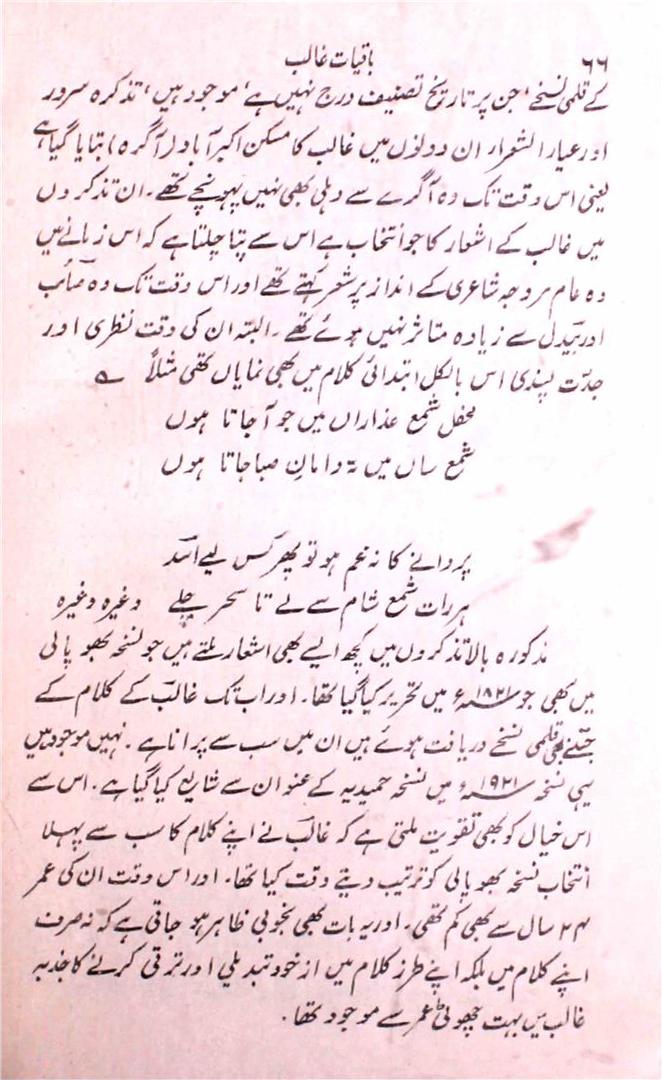 ۶۶
باقیات غالب
کے قلمی نسخے، جن پر تاریخ تصنیف درج نہیں ہے، موجود ہیں، تذکرہ سرور
اور عیار الشعراء ان دونوں میں غالب کا مسکن اکبر آباد (آگرہ) بتایا گیا ہے
یعنی اس وقت تک وہ آگرے سے دہلی بھی نہیں پہونچے تھے۔ ان تذکروں
میں غالب کے اشعار کا جو انتخاب ہے اس سے پتا چلتا ہے کہ اس زمانے میں
وہ عام مروجہ شاعری کے انداز پر شعر کہتے تھے اور اس وقت تک وہ صائب
اور بیدل سے زیادہ متاثر نہیں ہوئے تھے۔ البتہ ان کی دقت نظری اور
جدّت پسندی اس بالکل ابتدائی کلام میں بھی نمایاں تھی مثلاً ؎
محفل شمع عذاراں میں جو آ جاتا ہوں
شمع ساں میں تہ دامانِ صبا جاتا ہوں
پروانے کا نہ غم ہو تو پھر کس لیے اسدؔ
ہر رات شمع شام سے لے تا سحر جلے وغیرہ وغیرہ
مذکورہ بالا تذکروں میں کچھ ایسے بھی اشعار ملتے ہیں جو نسخہ بھوپالی
میں بھی جو ۱۸۲۱ء میں تحریر کیا گیا تھا۔ اور اب تک غالبؔ کے کلام کے
جتنے بھی قلمی نسخے دریافت ہوئے ہیں ان میں سب سے پرانا ہے۔ نہیں موجود ہیں
یہی نسخہ ۱۹۲۱ء میں نسخہ حمیدیہ کے عنوان سے شایع کیا گیا ہے۔ اس سے
اس خیال کو بھی تقویت ملتی ہے کہ غالبؔ نے اپنے کلام کا سب سے پہلا
انتخاب نسخہ بھوپالی کو ترتیب دیتے وقت کیا تھا۔ اور اس وقت ان کی عمر
۲۴ سال سے بھی کم تھی۔ اور یہ بات بھی بخوبی ظاہر ہو جاتی ہے کہ نہ صرف
اپنے کلام میں بلکہ اپنے طرز کلام میں از خود تبدیلی اور ترقی کرنے کا جذبہ
غالب میں بہت چھوٹی عمر سے موجود تھا۔